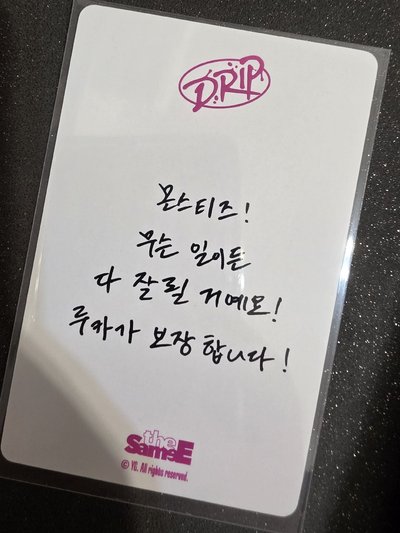 DRIP
몬스티즈!
무슨 일이든
다 잘 될 거예요!
루카가 보장 합니다!
the
SameE
© YG. All rights reserved.